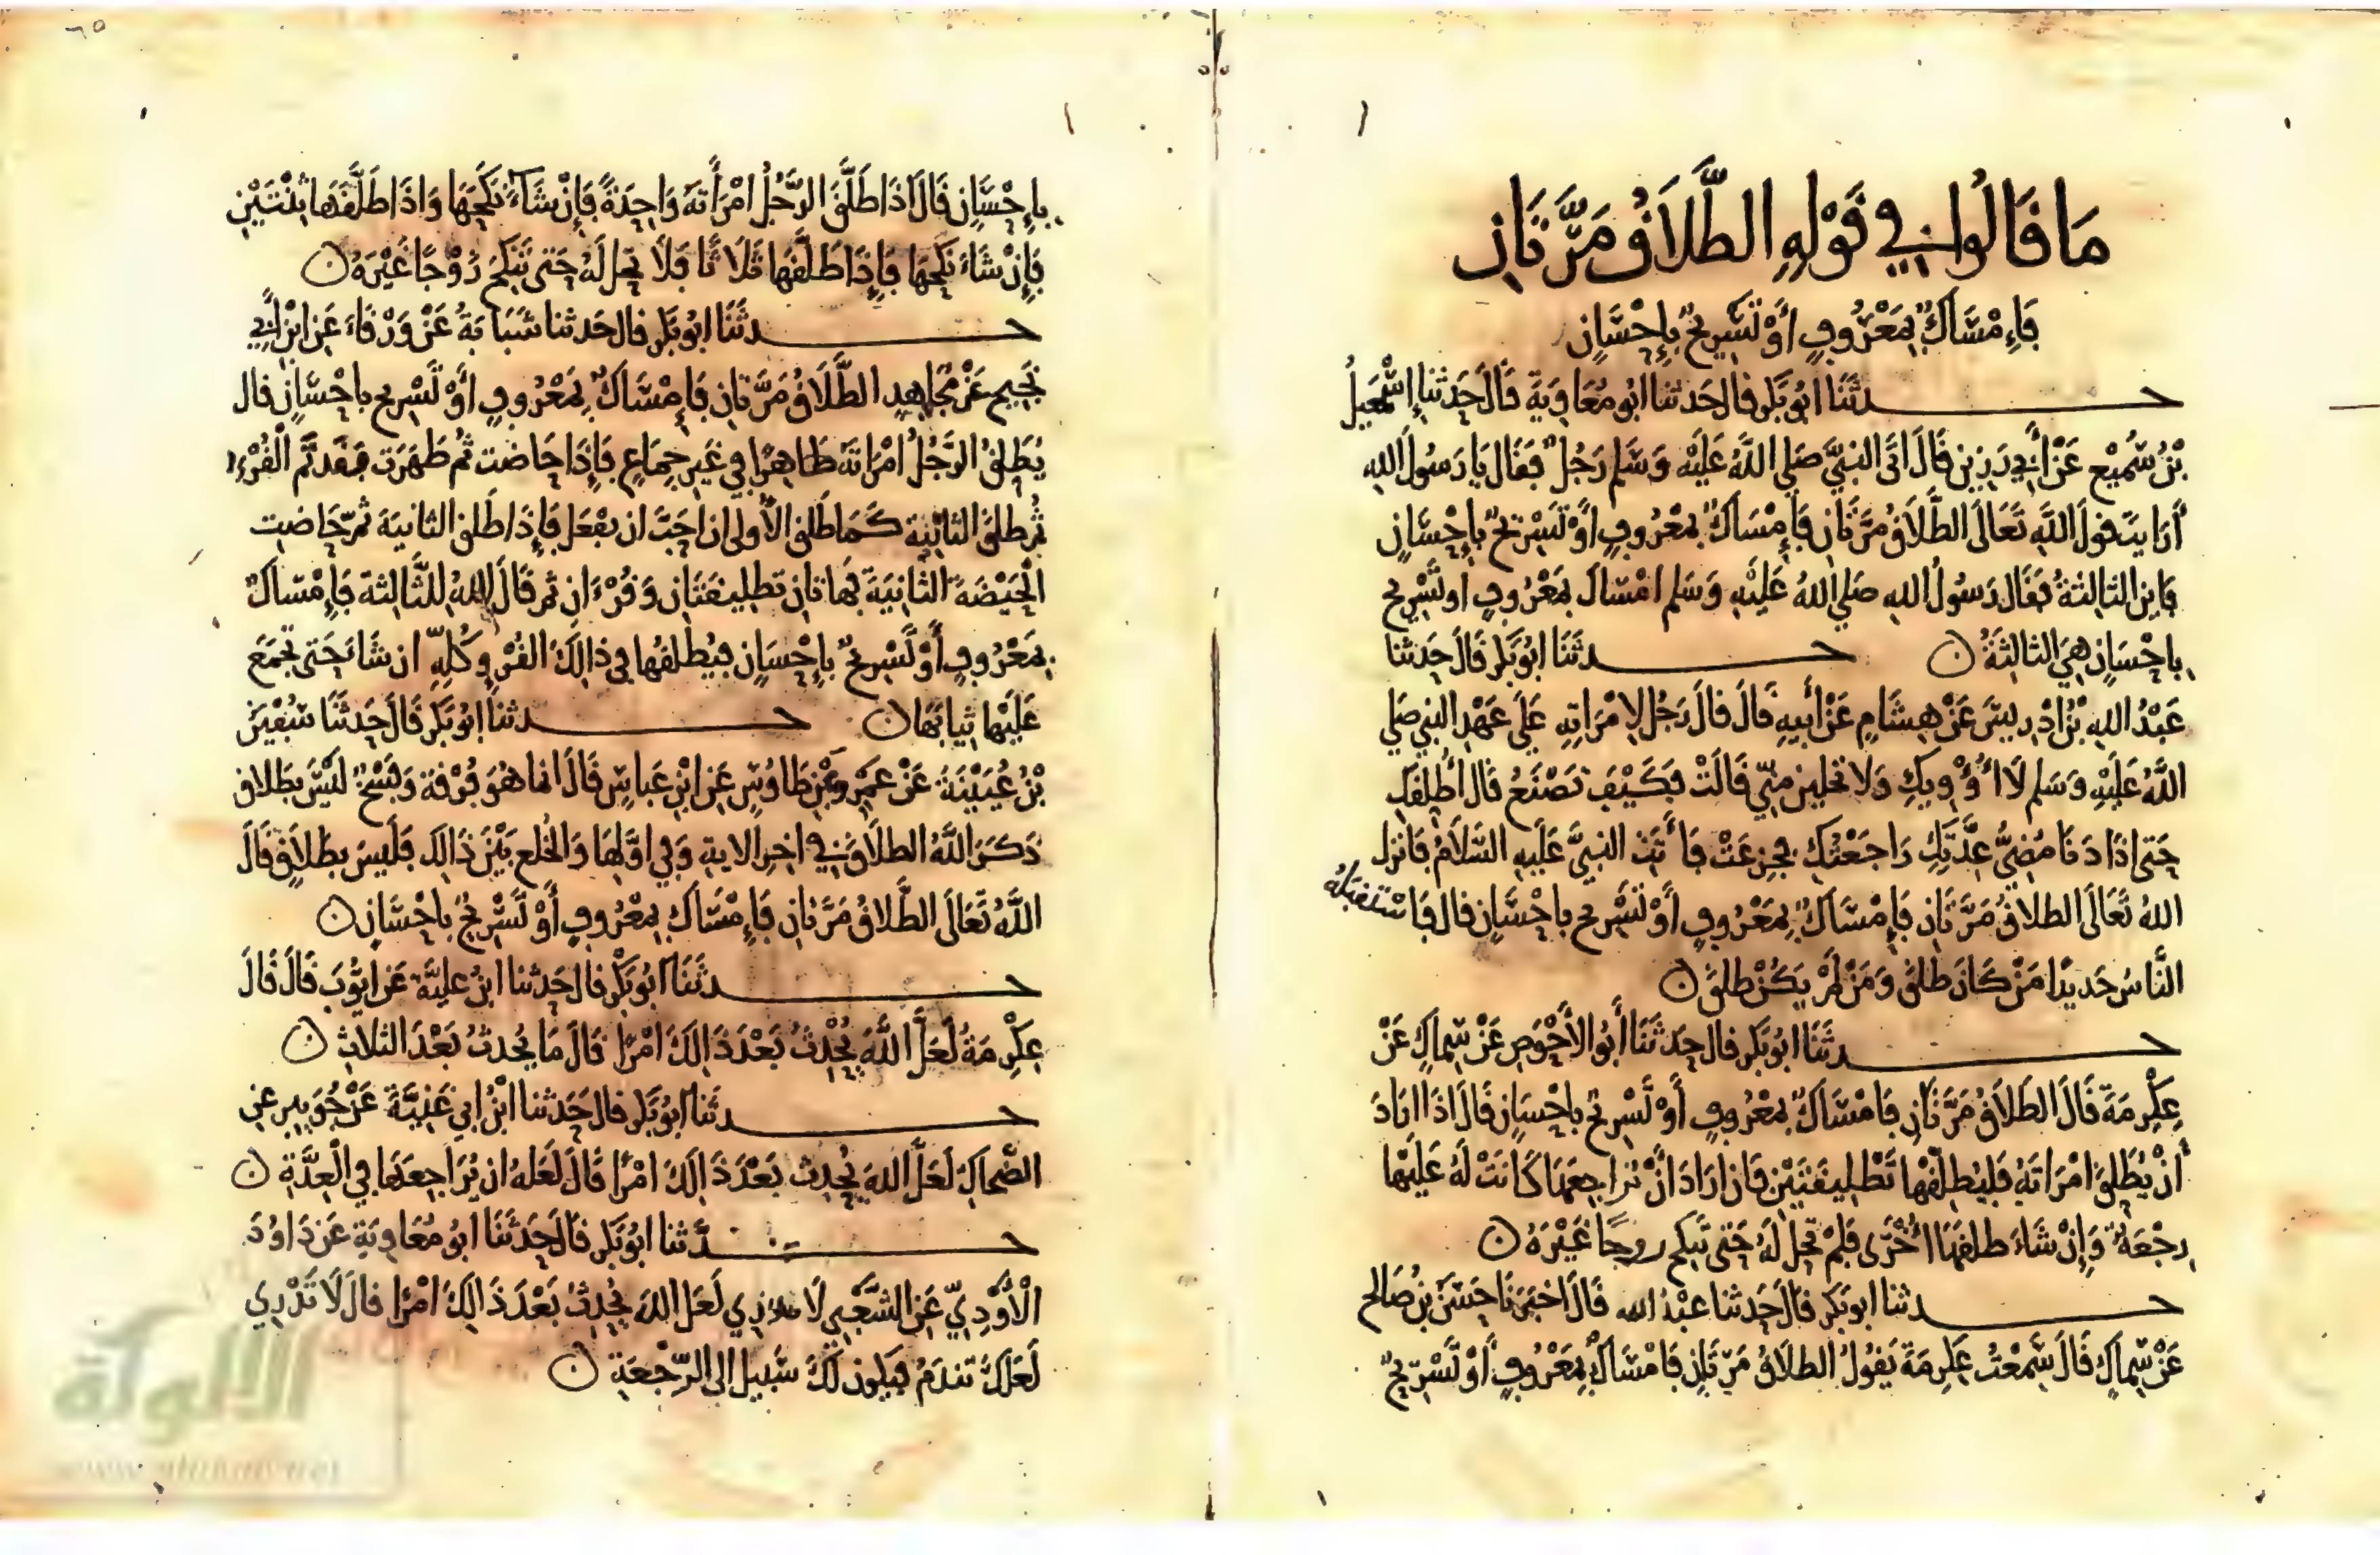 مَا قَالُوا فِي قَوْلِهِ الطَّلَاقُ مَرَّتَانِ
فَإِمْسَاكٌ بِمَعْرُوفٍ أَوْ تَسْرِيحٌ بِإِحْسَانٍ
حدثَنَا ابُو بَكر قال حَدثنا ابُو مُعَاوِيَة قَالَ حَدثنا إسْمَعِيلُ
بْنُ سُمَيْعٍ عَنْ أَبِي رَزِينٍ قَالَ اتَى النبيَّ صَلي اللَّهُ عَلَيْه وَسَلم رَجُلٌ فَقَال يَا رَسُولَ الله
أَرَايتَ قولَ اللَّهِ تَعَالَى الطَّلَاقُ مَرَّتَانِ فَإِمْسَاكٌ بِمَعْرُوفٍ أَوْ تَسْرِيحٌ بِإِحْسَانٍ
فَاين الثالثةُ فَقَال رَسُولُ الله صَلي اللهُ عَلَيْهِ وَسَلم امْسَاك بمَعْرُوفٍ او تَسْرِيح
بِاحْسَانٍ هِيَ الثالثَةُ ن حدثَنَا ابُو بَكر قَالَ حَدثنا
عَبْدُ الله بْنُ ادْرِيسَ عَنْ هِشَامٍ عَنْ أَبِيهِ قَالَ قالَ رَجُل لامْرَاتِهِ عَلَى عَهْدِ النبي صَلي
اللَّهُ عَلَيْهِ وَسَلم لَا أُؤْوِيكِ وَلا تحلين مِنِّي قَالَتْ فَكَيْفَ تَصْنَعُ قَال أُطَلِّقكِ
حَتى اذَا دَنَا مُضِيُّ عِدَّتِكِ رَاجَعْتُكِ فجزعَتْ فَأَتَتِ النبيَّ عَلَيهِ السَّلامُ فَانزل
اللهُ تَعَالَى الطلاقُ مَرَّتَانِ فَإِمْسَاكٌ بِمَعْرُوفٍ أَوْ تَسْرِيح بِاحْسَانٍ قال فَاسْتقبَلَهُ
النَّاسُ جَدِيدًا مَنْ كَانَ طَلقَ وَمَنْ لَمْ يَكُنْ طلقَ ن
حدثَنَا ابُو بَكر قال حَدثَنَا أَبُو الأَحْوَصِ عَنْ سِمَاكٍ عَنْ
عِكْرِمَةَ قَالَ الطَّلَاقُ مَرَّتَانِ فَامْسَاكٌ بمَعْرُوفٍ أَوْ تَسْرِيحٌ بِاحْسَانٍ قَالَ اذَا ارَادَ
أَنْ يُطَلقَ امْرَاتَهُ فَليُطَلِّقْهَا تَطْلِيقَتَيْنِ فَان ارَادَ انْ يُرَاجِعَهَا كَانَتْ لَهُ عَلَيْهَا
رِجْعَةٌ وَإِنْ شَاءَ طلقَهَا اُخْرَى فَلَمْ تَحِلَّ لَهُ حَتى تَنكِحَ زوجًا غَيْرَهُ ن
حدثنا ابو بَكر قالَ حَدثنا عبْدُ الله قَالَ اخبَرَنَا حَسَنُ بنُ صَالح
عَنْ سِمَاكٍ قَالَ سَمِعْتُ عِكْرِمَةَ يَقُولُ الطلَاقُ مَرّتَانِ فَامْسَاكٌ بِمَعْرُوفٍ أَوْ تَسْرِيحٌ
بِإِحْسَانٍ قَالَ اذَا طَلَّقَ الرَّجُلُ امْرَأَتَهُ وَاحِدَةً فَإِنْ شَاءَ نَكَحَهَا وَاذَا طَلَّقَهَا ثِنْتَيْنِ
فَإِنْ شَاءَ نَكَحَهَا فَإِذَا طَلَّقَهَا ثَلَاثًا فَلَا تحل لَهُ حَتى تَنكِحَ زَوْجًا غَيْرَهُ ن
حدثَنَا ابُو بَكر قال حَدثنا شَبَابَةُ عَنْ وَرْقَاءَ عَنِ ابْنِ أَبِي
نَجِيحٍ عَنْ مُجَاهِدٍ الطَّلَاقُ مَرَّتَانِ فَإِمْسَاكٌ بِمَعْرُوفٍ أَوْ تَسْرِيح بِاحْسَانٍ قال
يُطَلِقُ الرَّجُلُ امْرَاتَهُ طَاهِرًا فِي غَيرِ جِمَاعٍ فَإِذَا حَاضت ثُم طَهُرَت فَقَد تَم الْقُرْءُ
ثُم طلقَ الثانِيَةَ كَمَا طَلقَ الأُولى ان احَبَّ ان يفْعَل فَإِذَا طَلقَ الثانيَةَ ثمّ حَاضَت
الْحَيْضَةَ الثَّانِيَةَ فهَاتَانِ تَطلِيقَتَانِ وَقُرْءَانِ ثم قَالَ اللهُ للثَّالِثةِ فَإِمْسَاكٌ
بِمَعْرُوفٍ أَوْ تَسْرِيحٌ بِإِحْسَانٍ فيُطَلقُهَا فِي ذَالِكَ القُرْءِ كُلِّهِ ان شَاءَ حَتى تَجمَعَ
عَلَيْهَا ثِيَابَهَا ن حدثنا ابُو بَكر قَالَ حَدثَنَا سُفْيَنُ
بْنُ عُيَيْنَةَ عَنْ عَمْرٍو عَنْ طَاوُسٍ عَنِ ابْنِ عَبَاسٍ قَالَ انما هُوَ فُرْقَة وَفَسْخٌ لَيْسَ بِطَلاقٍ
ذَكَرَ اللَّهُ الطلَاقَ فِي اخِرِ الايَةِ وَفِي اوَّلِهَا وَالْخُلع بَيْنَ ذَالِكَ فَلَيسَ بِطَلَاقٍ قَالَ
اللَّهُ تَعَالَى الطَّلَاقُ مَرَّتَانِ فَإِمْسَاكٌ بِمَعْرُوفٍ أَوْ تَسْرِيحٌ بِاحْسَانٍ ن
حدثَنَا ابُو بَكْر قال حَدثنا ابنُ عليَّةَ عَن ايُّوبَ قَالَ قَالَ
عِكْرِمَةُ لَعَلَّ اللَّهَ يُحْدِثُ بَعْدَ ذَالِكَ امْرًا قَالَ مَا يُحدثُ بَعْدَ الثلاثِ ن
حدثنا ابُو بَكر قال حَدثنا ابْنُ ابِي غَنِيَّةَ عَنْ جُوَيبرٍ عَنِ
الضَّحاكِ لَعَلَّ اللهَ يُحدِث بَعْدَ ذَالِكَ امْرًا قَالَ لَعَلهُ ان يُرَاجِعَهَا فِي الْعِدَّةِ ن
حدثنا ابُو بَكر قَالَ حَدثَنَا ابُو مُعَاوِيَةَ عَن دَاوُدَ
الْأَوْدِيِّ عَنِ الشَّعْبِي لَا تدري لَعَل اللهَ يُحدِثُ بَعْدَ ذَالِكَ امْرًا قالَ لَا تَدْرِي
لَعَلكَ تَندَمُ فيكون لَكَ سَبيل الى الرّجْعَةِ ن
الألوكة